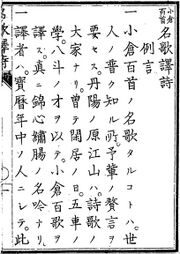 小倉百首 名歌譯詩
例言
一小倉百首ノ名歌タルコトハ。世
人ノ普ク知ル所。予輩ノ贅言ヲ
要セス。丹陽ノ原江山ハ。詩歌ノ
大家ナリ。曾テ閑居ノ日。五車ノ
學。八斗ノ才ヲ以テ。小倉百歌ヲ
譯ス。真ニ錦心繡腸ノ名吟ナリ。
一譯者ハ。寶曆年中ノ人ニシテ。此